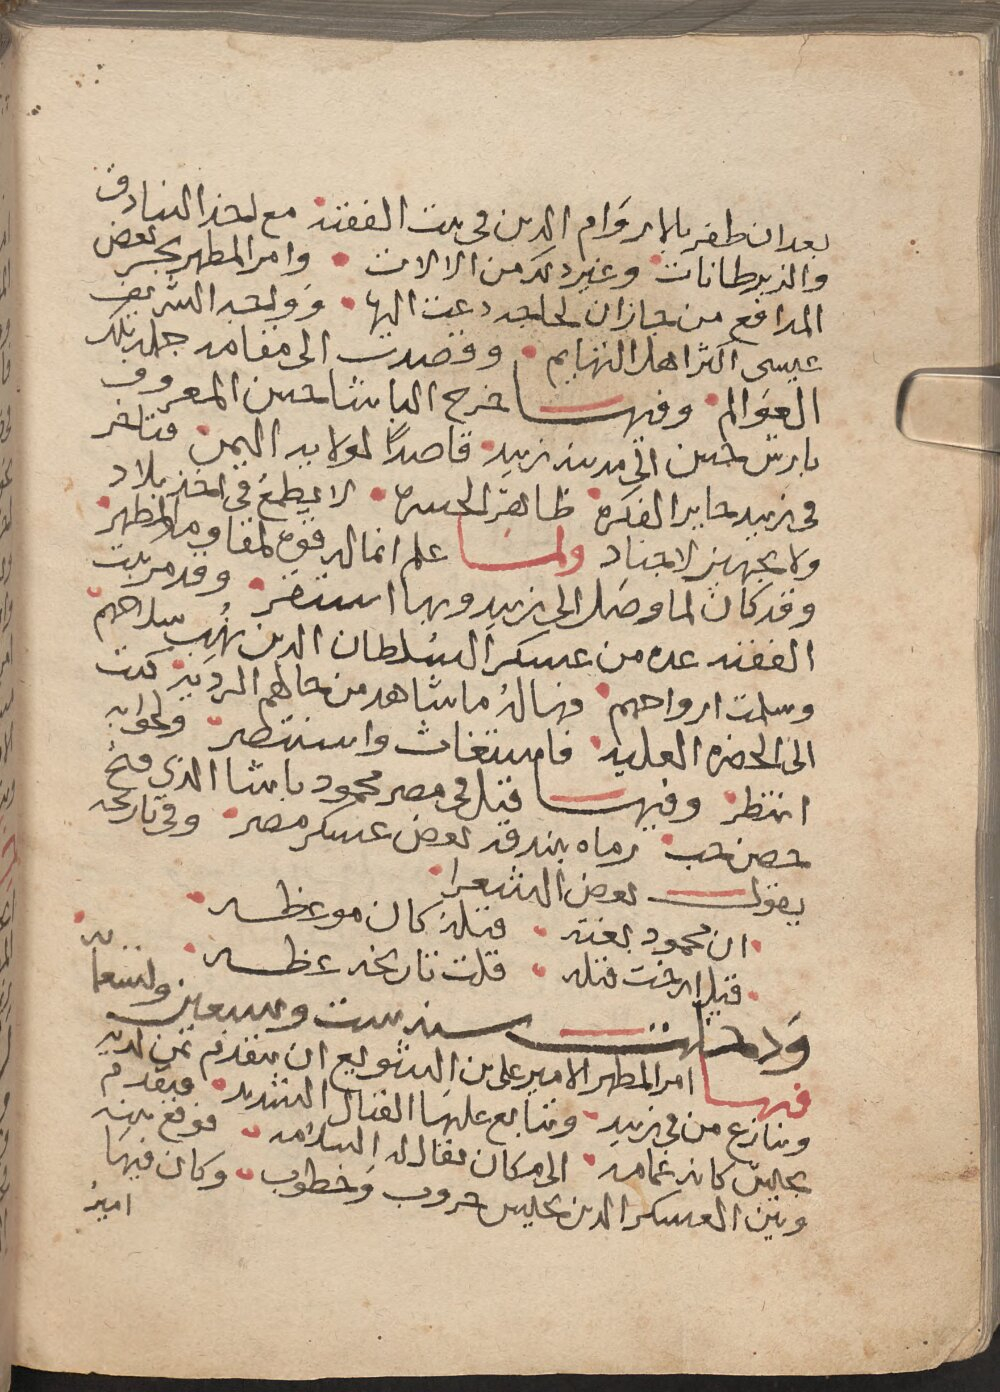 بعد ان ظفر بالاروام الذين في بيت الفقيه مع اخذ البنادق
والزبرطانات وغير ذلك من الالات وامر المطهر بجر بعض
المدافع من جازان لحاجه دعت اليها وواجه الشريف
عيسى اكثر اهل التهايم وقصدت الى مقامه جمله تلك
العوالم وفيها خرج الباشا حسن المعروف
بارتن حسن الى مدينه زبيد قاصدًا لولايه اليمن فتاخر
في زبيد حاير الفكره ظاهر الحسره لا يطمع في اخذ بلاد
ولا تجهيز الاجناد ولما علم انما له قوه لمقاومه المطهر
وقد كان لما وصل الى زبيد وبها استقر وقد مر ببيت
الفقيه عده من عسكر السلطان الذين نُهِب سلاحهم
وسلمت ارواحهم فهالهُ ما شاهد من حالهم الرديه كتب
الى الحضره العليه فاستغاث واستنصر ولجوابه
انتظر وفيها قتل في مصر محمود باشا الذي فتح
حصن حب رماه ببندقه بعض عسكر مصر وفي تاريخه
يقول بعض الشعرا
ان محمود بغته قتلهُ كان موعظه
قيل ارخت قتله قلت تاريخه عظه
ودخلت سنه ست وسبعين وتسعمايه
فيها امر المطهر الامير علي بن الشويع ان يتقدم بمن لديه
وينازع من في زبيد ويتابع عليها القتال الشديد فتقدم
بجيش كانه غمامه الى مكان يقال له السلامه فوقع بينه
وبين العسكر الذين بحيس حروب وخطوب وكان فيها
امير